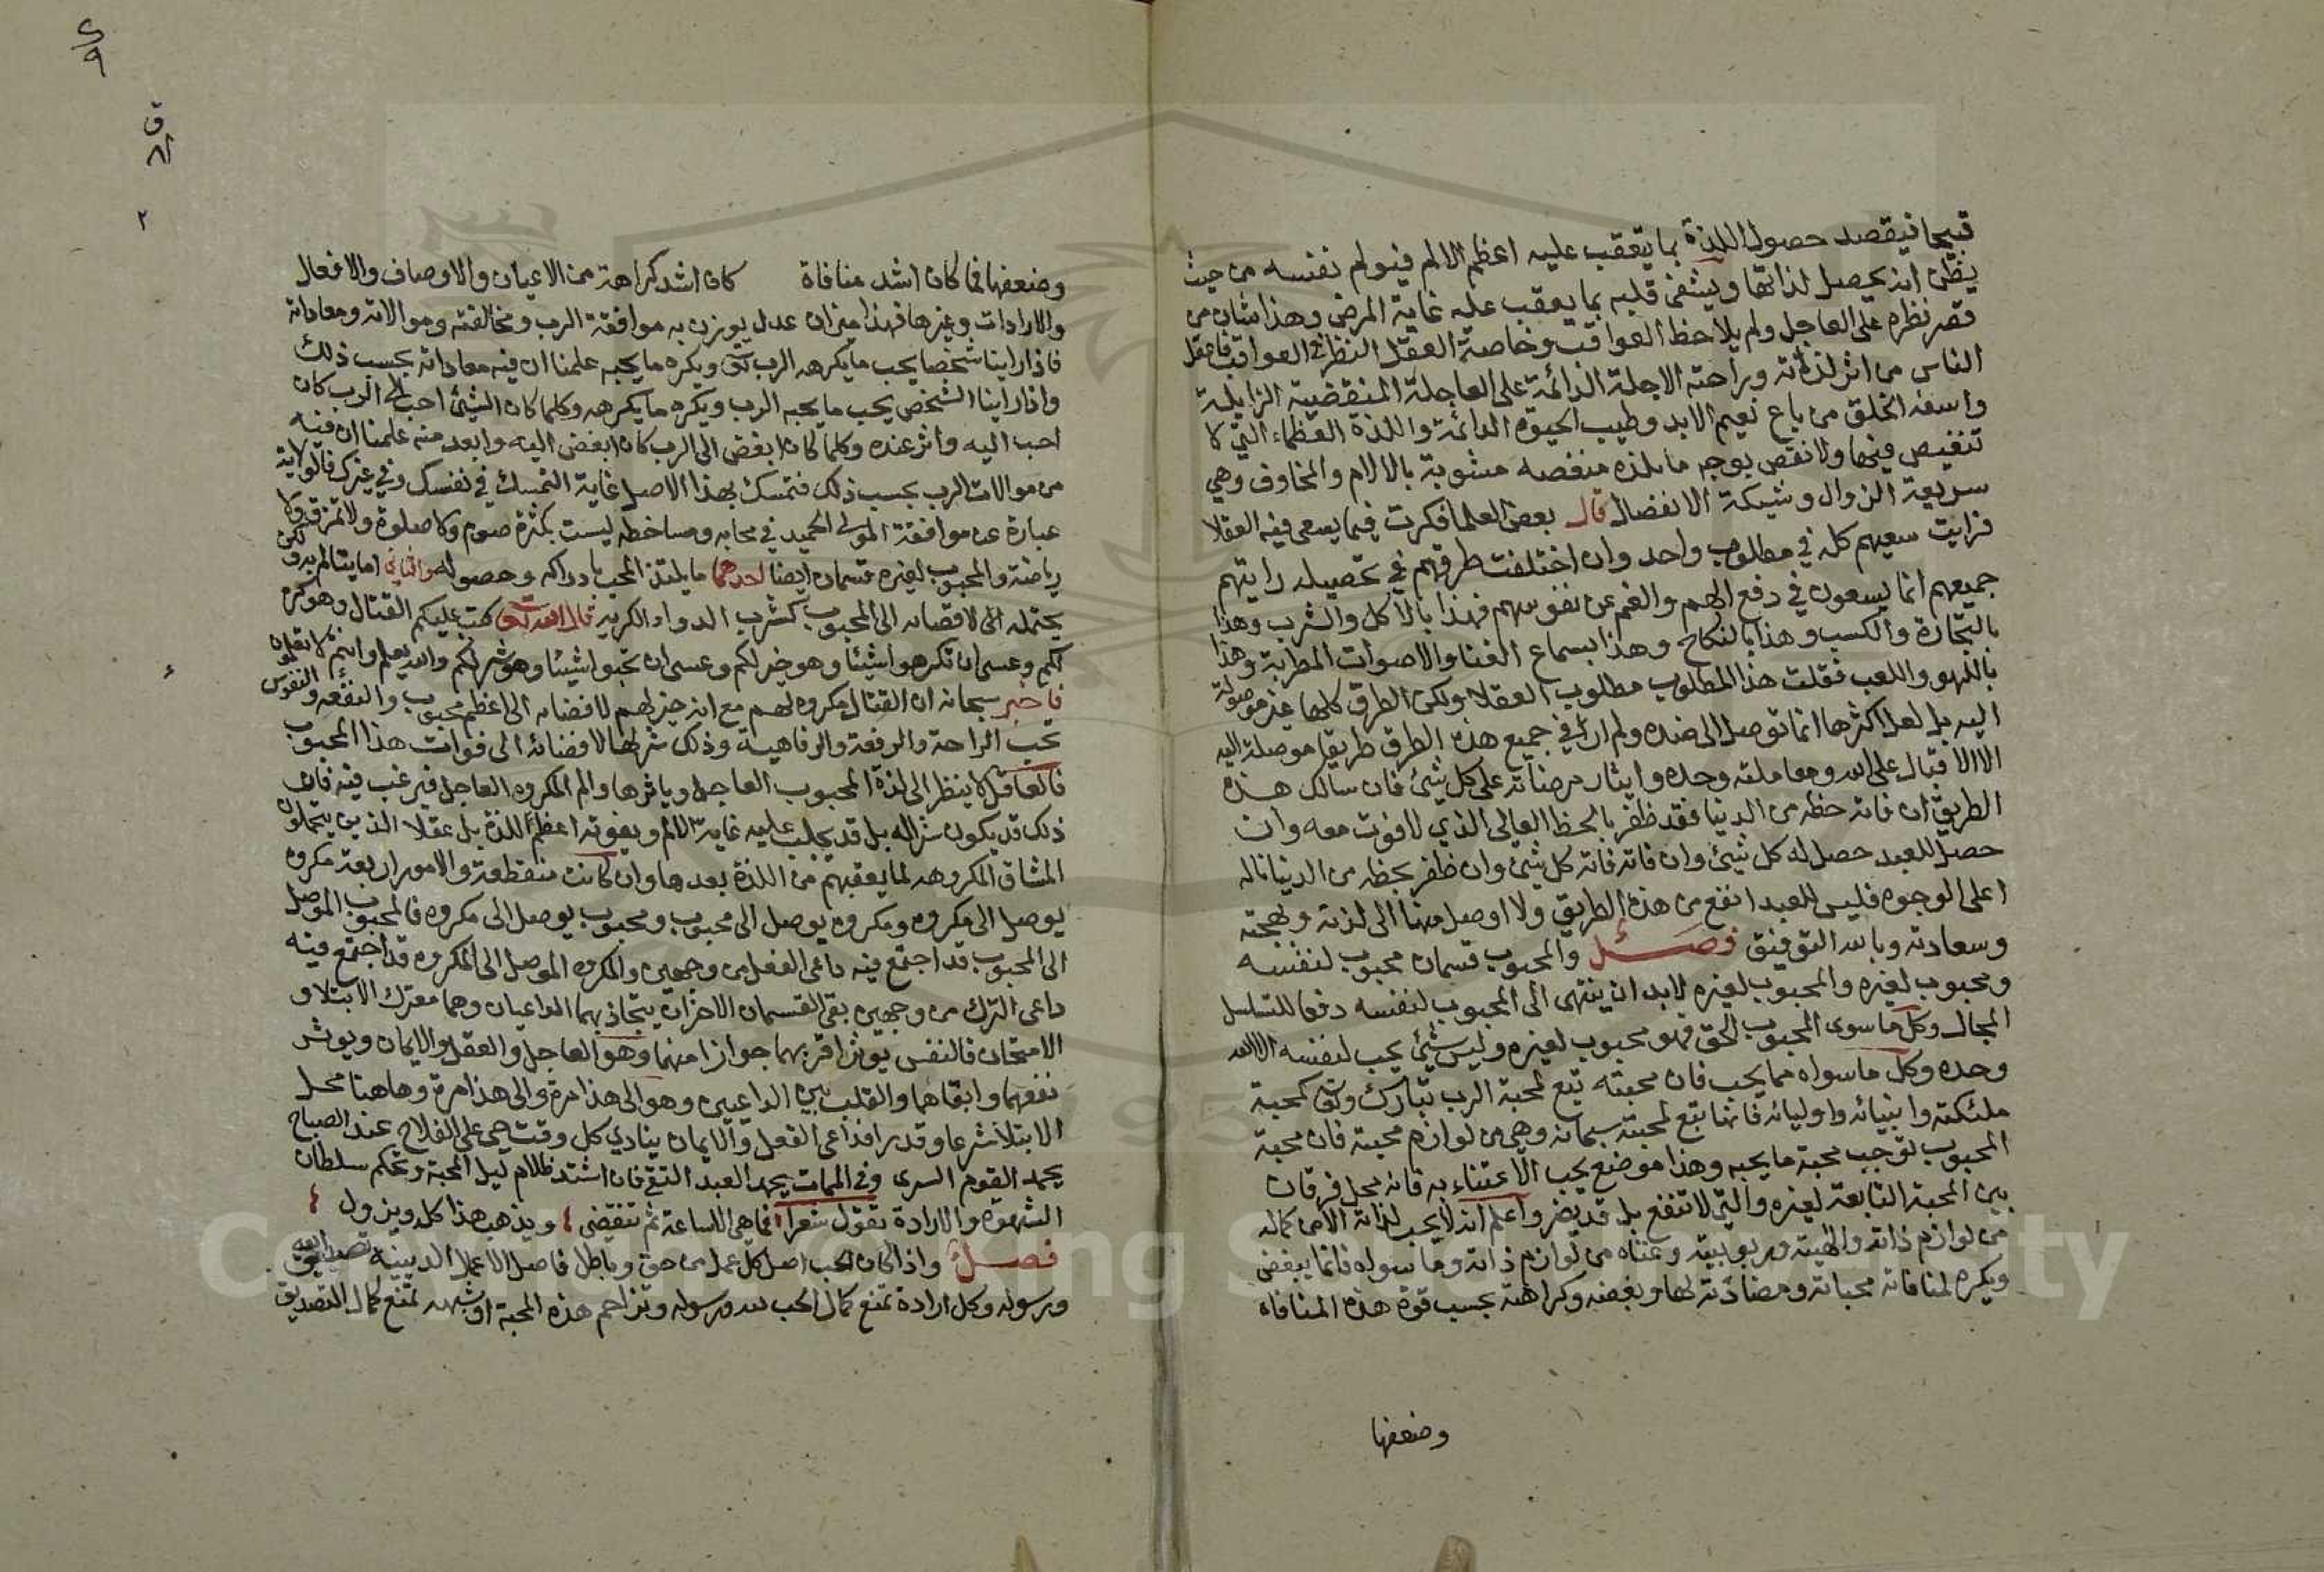 قبيحا فيقصد حصول اللذة بما يتعقب عليه اعظم الالم فيولم نفسه من حيث
يظن انه يحصل لذاتها ويشفى قلبه بما يعقب عليه غاية المرض وهذا شان من
قصر نظره على العاجل ولم يلاحظ العواقب وخاصة العقل النظر في العواقب فاعقل
الناس من اثر لذته وراحته الاجلة الدائمة على العاجلة المنقضية الزايلة
واسفه الخلق من باع نعيم الابد وطيب الحيوة الدائمة واللذة العظماء التي لا
تنغيص فيها ولا نقص بوجه ما بلذه منغصه مشوبة بالالام والمخاوف وهي
سريعة الزوال وشيكة الانفصال قال بعض العلما فكرت فيما يسعى فيه العقلا
فرايت سعيهم كله في مطلوب واحد وان اختلفت طرقهم في تحصيله رايتهم
جميعهم انما يسعون في دفع الهم والغم عن نفوسهم فهذا بالاكل والشرب وهذا
بالتجارة والكسب وهذا بالنكاح وهذا بسماع الغنا والاصوات المطربة وهذا
باللهو واللعب فقلت هذا المطلوب مطلوب العقلا ولكن الطرق كلها غير موصولة
اليه بل لعل اكثرها انما توصل الى ضده ولم ار في جميع هذه الطرق طريقا موصلة اليه
الا الاقبال على الله ومعاملته وحده وايثار مرضاته على كل شئ فان سالك هذه
الطريق ان فاته حظه من الدنيا فقد ظفر بالحظ العالي الذي لا فوت معه وان
حصل للعبد حصل له كل شئ وان فاته فاته كل شئ وان ظفر بحظه من الدنيا ناله
اعلى الوجوه فليس للعبد انفع من هذه الطريق ولا اوصل منها الى لذته وبهجته
وسعادته وبالله التوفيق فصل والمحبوب قسمان محبوب لنفسه
ومحبوب لغيره والمحبوب لغيره لابد ان ينتهى الى المحبوب لنفسه دفعا للتسلسل
المحال وكل ما سوى المحبوب الحق فهو محبوب لغيره وليس شئ يحب لنفسه الا الله
وحده وكل ما سواه مما يحب فان محبته تبع لمحبة الرب تبارك وتعالى كمحبة
ملئكته وانبيائه واوليائه فانها تبع لمحبته سبحانه وهي من لوازم محبته فان محبة
المحبوب توجب محبة ما يحبه وهذا موضع يجب الاعتناء به فانه محل فرقان
بين المحبة التابعة لغيره والتي لا تنفع بل قد يضر واعلم انه لا يحب لذاته الا من كماله
من لوازم ذاته والهيته وربوبيته وغناه من لوازم ذاته وما سواه فانما يبغض
ويكره لمنافاته محباته ومضاذته لها وبغضه وكراهته بحسب قوة هذه المنافاة
وضعفها
وضعفها فما كان اشد منافاة كان اشد كراهة من الاعيان والاوصاف والافعال
والارادات وغيرها فهذا ميزان عدل يوزن به موافقة الرب ومخالفته وموالاته ومعاداته
فاذا راينا شخصا يحب ما يكرهه الرب تعالى ويكره ما يحبه علمنا ان فيه معاداته بحسب ذلك
واذا راينا الشخص يحب ما يحبه الرب ويكره ما يكرهه وكلما كان الشئ احب الى الرب كان
احب اليه واثر عنده وكلما كان ابغض الى الرب كان ابغض اليه وابعد منه علمنا ان فيه
من موالات الرب بحسب ذلك فتمسك بهذا الاصل غاية التمسك في نفسك وفي غيرك فالولاية
عبارة عن موافقة المولى الحميد في محابه ومساخطه ليست بكثرة صوم ولا صلوة ولا تمزق ولا
رياضة والمحبوب لغيره قسمان ايضا احدهما ما يلتذ المحب بادراكه وحصوله والثاني اما يتالم به ولكن
يحتمله الى لافضائه الى المحبوب كشرب الدواء الكريه قال الله تعالى كتب عليكم القتال وهو كره
لكم وعسى ان تكرهوا شيئا وهو خير لكم وعسى ان تحبوا شيئا وهو شر لكم والله يعلم وانتم لا تعلمون
فاخبر سبحانه ان القتال مكروه لهم مع انه خير لهم لافضائه الى اعظم محبوب وانفعه والنفوس
تحب الراحة والرفعة والرفاهية وذلك شر لها لافضائه الى فوات هذا المحبوب
فالعاقل لا ينظر الى لذة المحبوب العاجل وياثرها والم المكروه العاجل فيرغب فيه فان
ذلك قد يكون شرا له بل قد يجلب عليه غاية الالم ويفوته اعظم اللذة بل عقلا الذين يتحملون
المشاق المكروهه لما يعقبهم من اللذة بعدها وان كانت منقطعة والامور اربعة مكروه
يوصل الى مكروه ومكروه يوصل الى محبوب ومحبوب يوصل الى مكروه فالمحبوب الموصل
الى المحبوب قد اجتمع فيه داعى الفعل من وجهين والمكروه الموصل الى المكروه قد اجتمع فيه
داعى الترك من وجهين بقى القسمان الاخران يتجاذبهما الداعيان وهما معترك الابتلا و
الامتحان فالنفس توثر اقربهما جوازا منهما وهو العاجل والعقل والايمان ويوثر
نفعهما وابقاهما والقلب بين الداعيين وهو الى هذا مرة والى هذا مرة وهاهنا محل
الابتلا شرعا وقدرا فداعى العقل والايمان ينادي كل وقت حي على الفلاح عند الصباح
يحمد القوم السرى وفي الممات يحمد العبد التقي فان اشتد ظلام ليل المحبة وتحكم سلطان
الشهوة والارادة تقول شعرا فما هي الا ساعة ثم تنقضي ويذهب هذا كله ويزول
فصل واذا كان الحب اصل كل عمل من حق وباطل فاصل الاعمال الدينية تصديق الله
ورسوله وكل ارادة تمنع كمال الحب لله ورسوله وتزاحم هذه المحبة او شبهه تمنع كمال التصديق